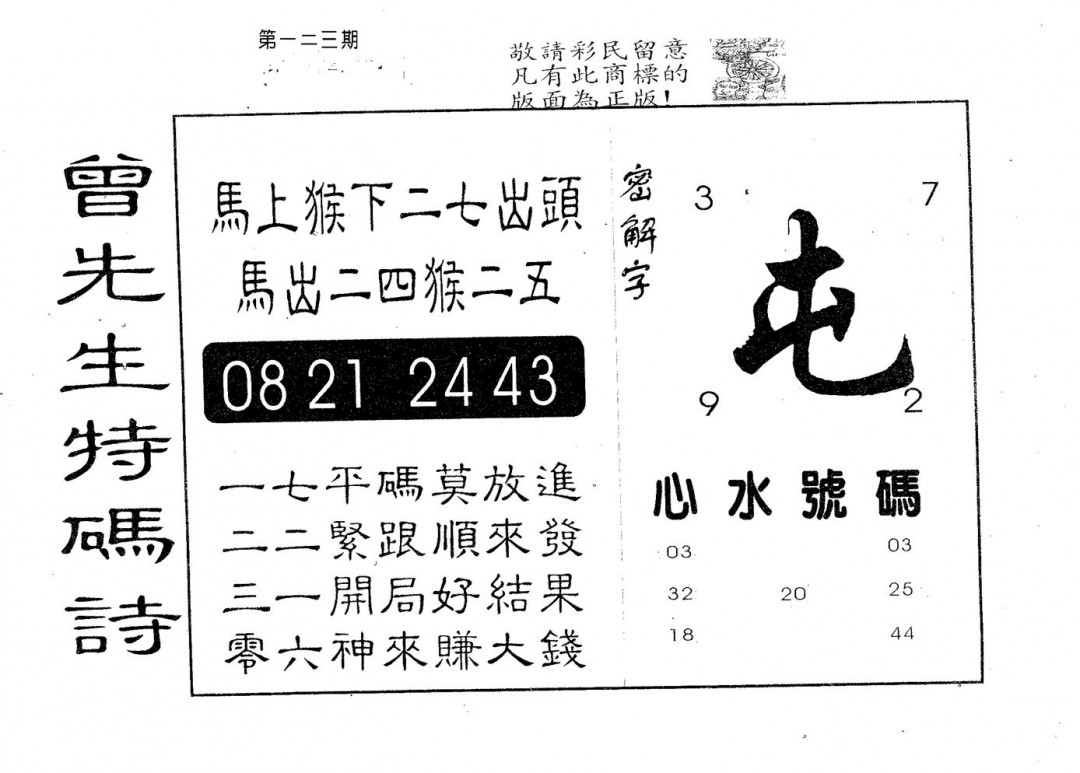 第一二三期
敬請彩民留意
凡有此商標的
版面為正版！
曾先生特碼詩
馬上猴下二七出頭
馬出二四猴二五
08 21 24 43
一七平碼莫放進
二二緊跟順來發
三一開局好結果
零六神來賺大錢
密解字
3 7
屯
9 2
心水號碼
03 03
32 20 25
18 44